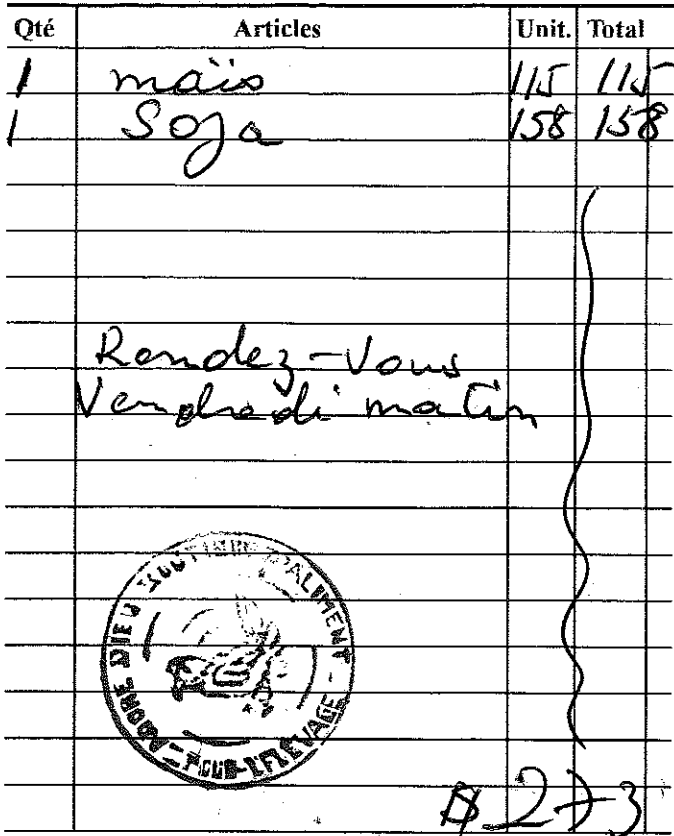 Qté Articles Unit. Total
1 maïs 115 115
1 Soja 158 158
Rendez-Vous
Vendredi matin
DIEU D'ALIMENT POUR L'ELEVAGE
$ 273